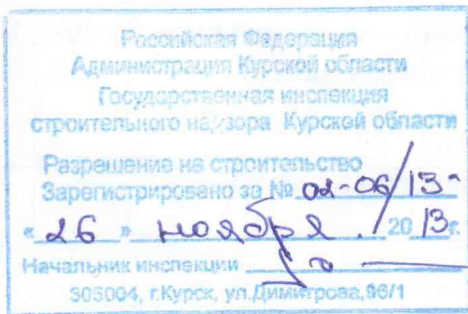 Российская Федерация
Администрация Курской области
Государственная инспекция
строительного надзора Курской области
Разрешение на строительство
Зарегистрировано за № 02-06/13-
« 26 » ноября 2013г.
Начальник инспекции
305004, г.Курск, ул.Димитрова,96/1